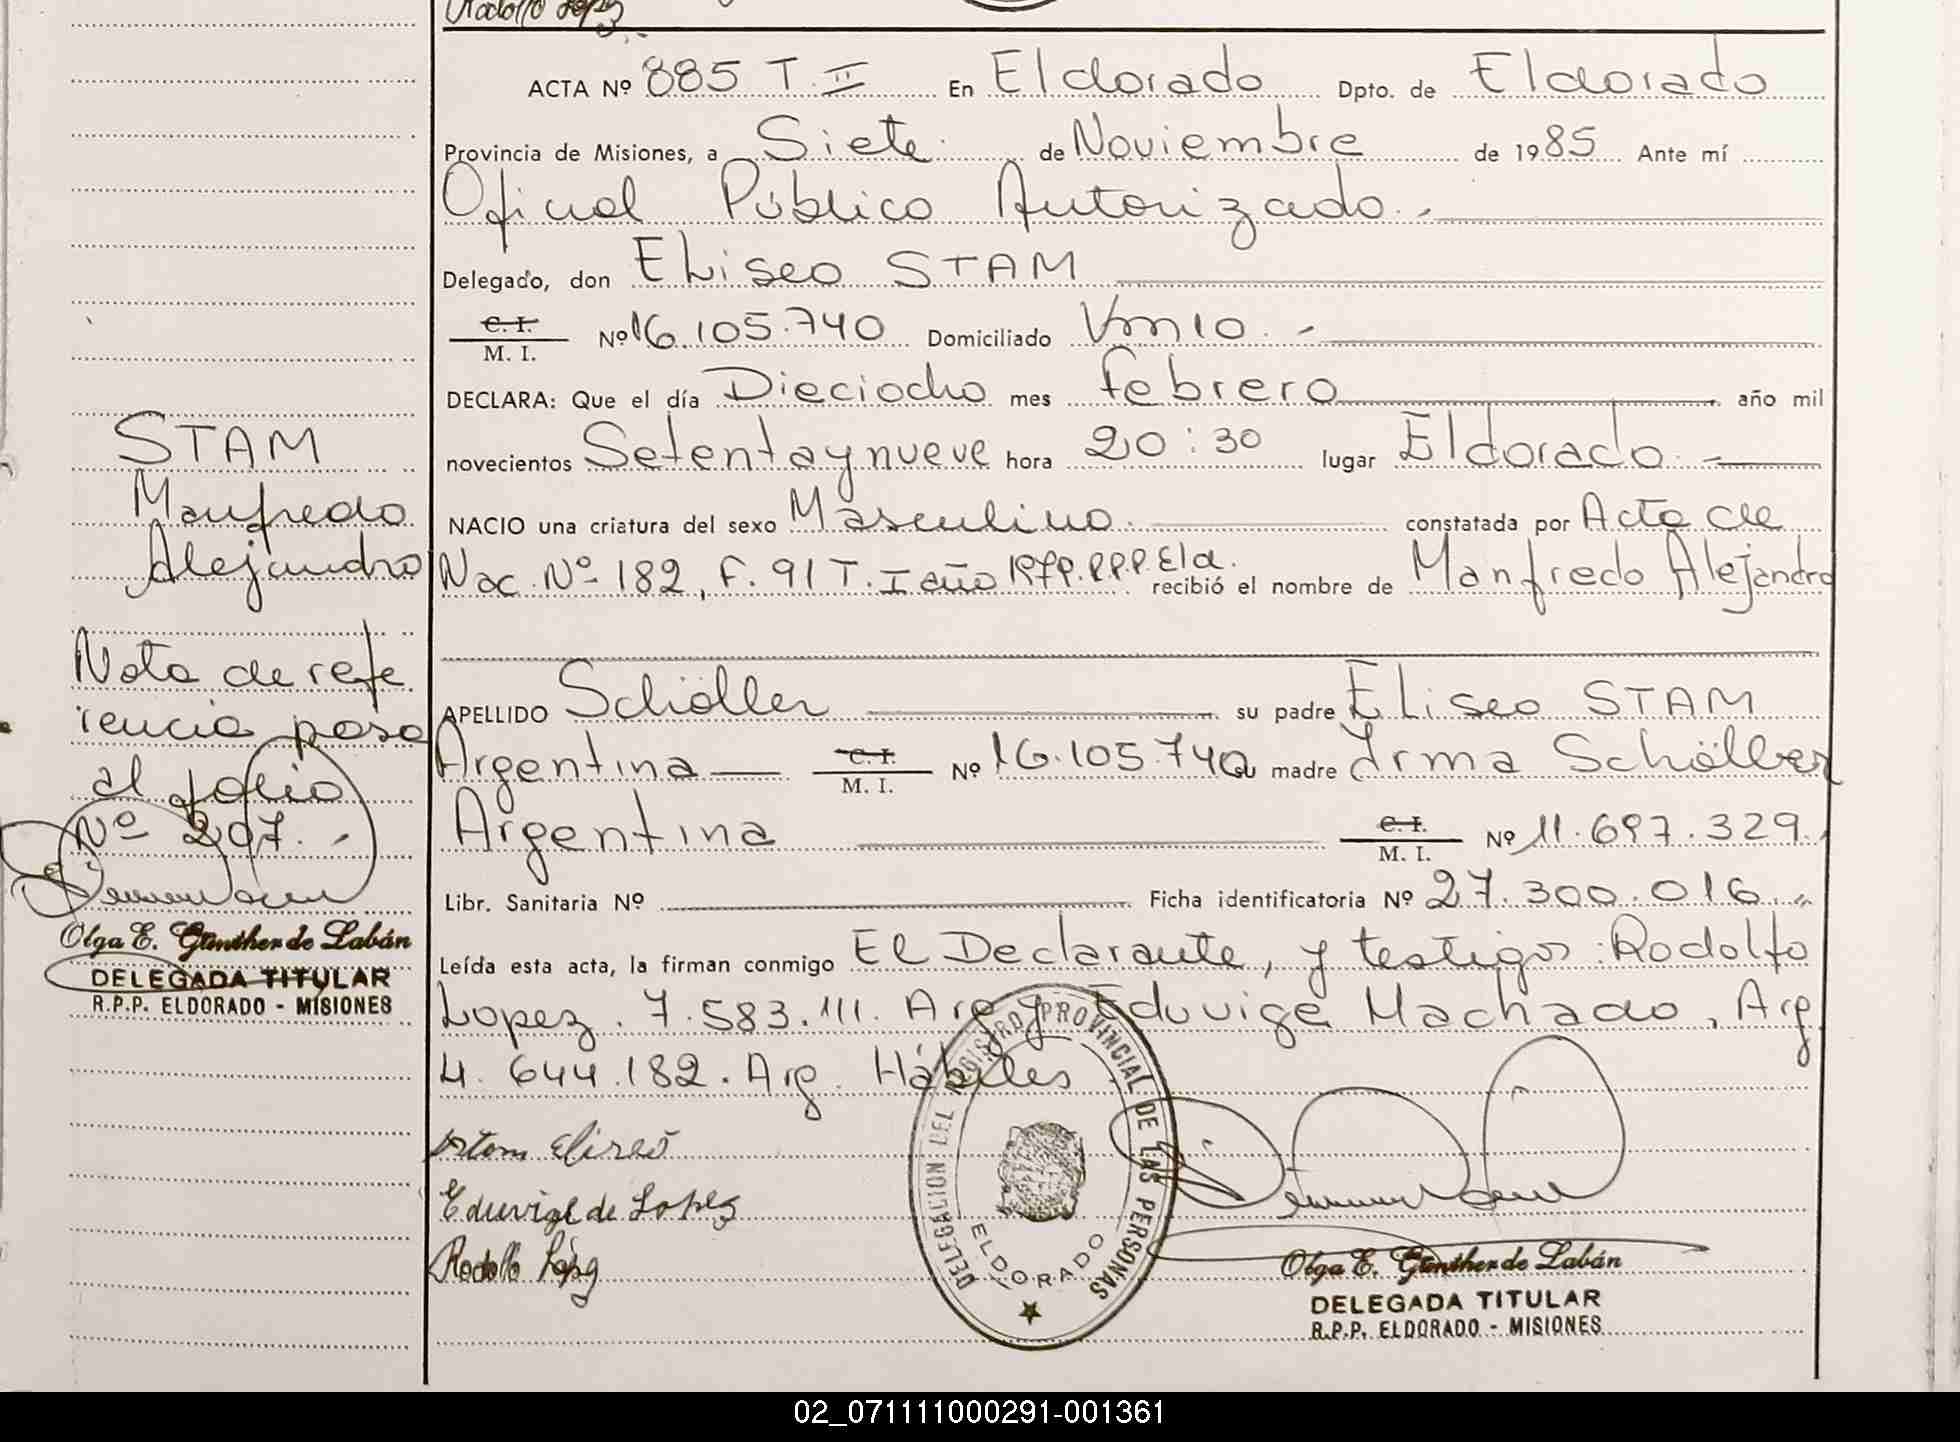 Rodolfo Lopez
ACTA Nº 885 T. II En Eldorado Dpto. de Eldorado
Provincia de Misiones, a Siete de Noviembre de 1985 Ante mí
Oficial Público Autorizado.-
Delegado, don Eliseo STAM
C. I.
M. I. Nº 16.105.740 Domiciliado Km 10.-
DECLARA: Que el día Dieciocho mes febrero año mil
novecientos Setentaynueve hora 20:30 lugar Eldorado.-
NACIO una criatura del sexo Masculino. constatada por Acta de
Nac. Nº 182, F. 91 T. I año 1979. R.P.P. Eld. recibió el nombre de Manfredo Alejandro
APELLIDO Schöller su padre Eliseo STAM
Argentina C. I. M. I. Nº 16.105.740 su madre Irma Schöller
Argentina C. I. M. I. Nº 11.697.329.
Libr. Sanitaria Nº Ficha identificatoria Nº 27.300.016.
Leída esta acta, la firman conmigo El Declarante, y testigos: Rodolfo
Lopez. 7.583.111. Arg y Eduvige Machado, Arg
4.644.182. Arg. Hábiles.
Stam Eliseo
Eduvige de Lopez
Rodolfo López
DELEGACION DEL REGISTRO PROVINCIAL DE LAS PERSONAS
ELDORADO
Olga E. Günther de Labán
DELEGADA TITULAR
R.P.P. ELDORADO - MISIONES
STAM
Manfredo
Alejandro
Nota de refe
rencia pasa
al folio
Nº 207.-
Olga E. Günther de Labán
DELEGADA TITULAR
R.P.P. ELDORADO - MISIONES
02_071111000291-001361